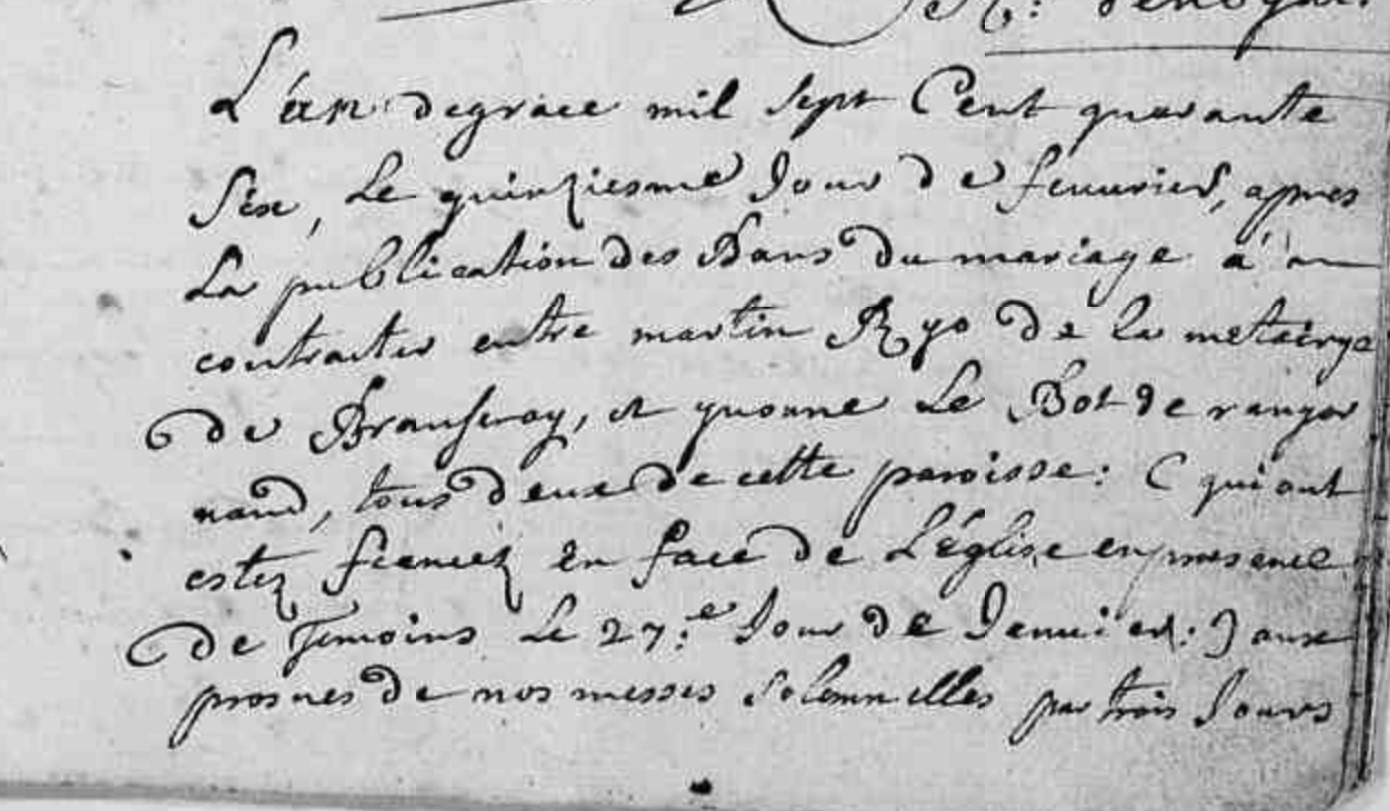 L'an de grace mil sept Cent quarante
Six, Le quinziesme Jour de feuvrier, apres
La publication des Bans du mariage à
contracter entre martin Ryo de la metairye
de Branferay, et yvonne Le Bot de rangor
nand, tous deux de cette paroisse: ( qui ont
estez fiencez En face de L'église en presence
de Temoins Le 27:e Jour de Jenvier: ) aux
prosnes de nos messes solemnelles par trois Jours